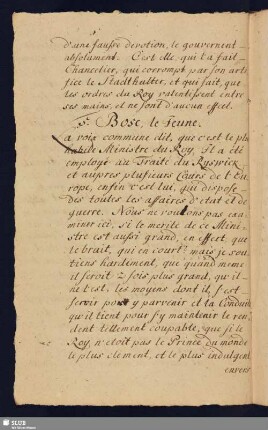 d'une fausse devotion, le gouvernent
absolument. C'est elle, qui l'a fait
Chancelier, qui corrompt par son arti
fice le Stadthalter, et qui fait, que
les ordres du Roy ralentissent entre
ses mains, et ne sont d'aucun effect.
Bose, le Jeune.
a voix commune dit, que c'est le plu
habile Ministre du Roy. Il a été
employé au Traité du Ryswick
et aupres plusieurs Cours de l'Eu
rope, enfin c'est lui, qui dispose
des toutes les affaires d'etat et de
guerre. Nous ne voulons pas exa
miner ici, si le merite de ce Mini
stre est aussi grand, en effect, que
le bruit, qui en court? mais je sou
tiens hardement, que quand meme
il seroit 2 fois plus grand, qu'il
n'est, les moyens dont il s'est
servir pour y parvenir et la Conduite
qu'il tient pour s'y maintenir le ren
dent tellement coupable, que si le
Roy, n'etoit pas le Prince du monde
le plus clement, et le plus indulgent
envers
SLUB